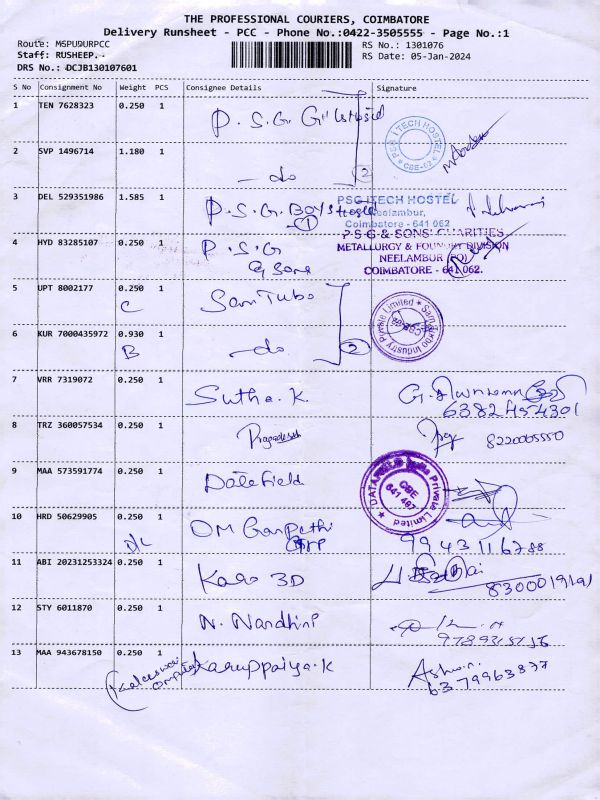 THE PROFESSIONAL COURIERS, COIMBATORE
Delivery Runsheet - PCC - Phone No.:0422-3505555 - Page No.:1
Route: MSPUDURPCC
RS No.: 1301076
Staff: RUSHEEP.
RS Date: 05-Jan-2024
DRS No.: DCJB130107601
S No Consignment No Weight PCS Consignee Details Signature
1 TEN 7628323 0.250 1 P.S.G. Hostel
PSG ITECH HOSTEL
CBE-62
2 SVP 1496714 1.180 1 - do 2
3 DEL 529351986 1.585 1 P.S.G. BOYS Hostel
1
PSG ITECH HOSTEL
Neelambur,
Coimbatore - 641 062
4 HYD 83285107 0.250 1 P.S.G & Sons
P S G & SONS' CHARITIES
METALLURGY & FOUNDRY DIVISION
NEELAMBUR (PO)
COIMBATORE - 641 062.
5 UPT 8002177 0.250 1 Sam Turbo
C
Sam Turbo Industry Private Limited
6 KUR 7000435972 0.930 1 - do 2
B
7 VRR 7319072 0.250 1 Sutha.K.
6382454301
8 TRZ 360057534 0.250 1
8220005550
9 MAA 573591774 0.250 1 Datefield
DATAFIELD India Private Limited
CBE
641 497
10 HRD 50629905 0.250 1 OM Ganpathi
D/C
9943116788
11 ABI 20231253324 0.250 1 Karo 3D
12 STY 6011870 0.250 1 N. Nandhini
13 MAA 943678150 0.250 1 Karuppaiya.K
Ashwin.
6379963837